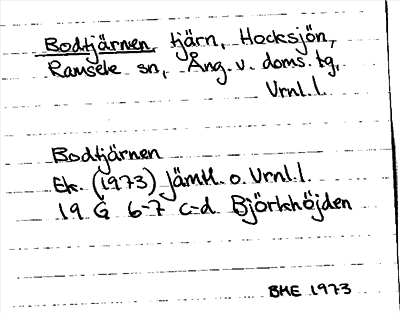 Bodtjärnen, tjärn, Hocksjön,
Ramsele sn, Ång. v. doms. tg,
Vrnl. l.
Bodtjärnen
Ek. (1973) Jämtl. o. Vrnl. l.
19 G 6-7 c-d Björkhöjden
BME 1973